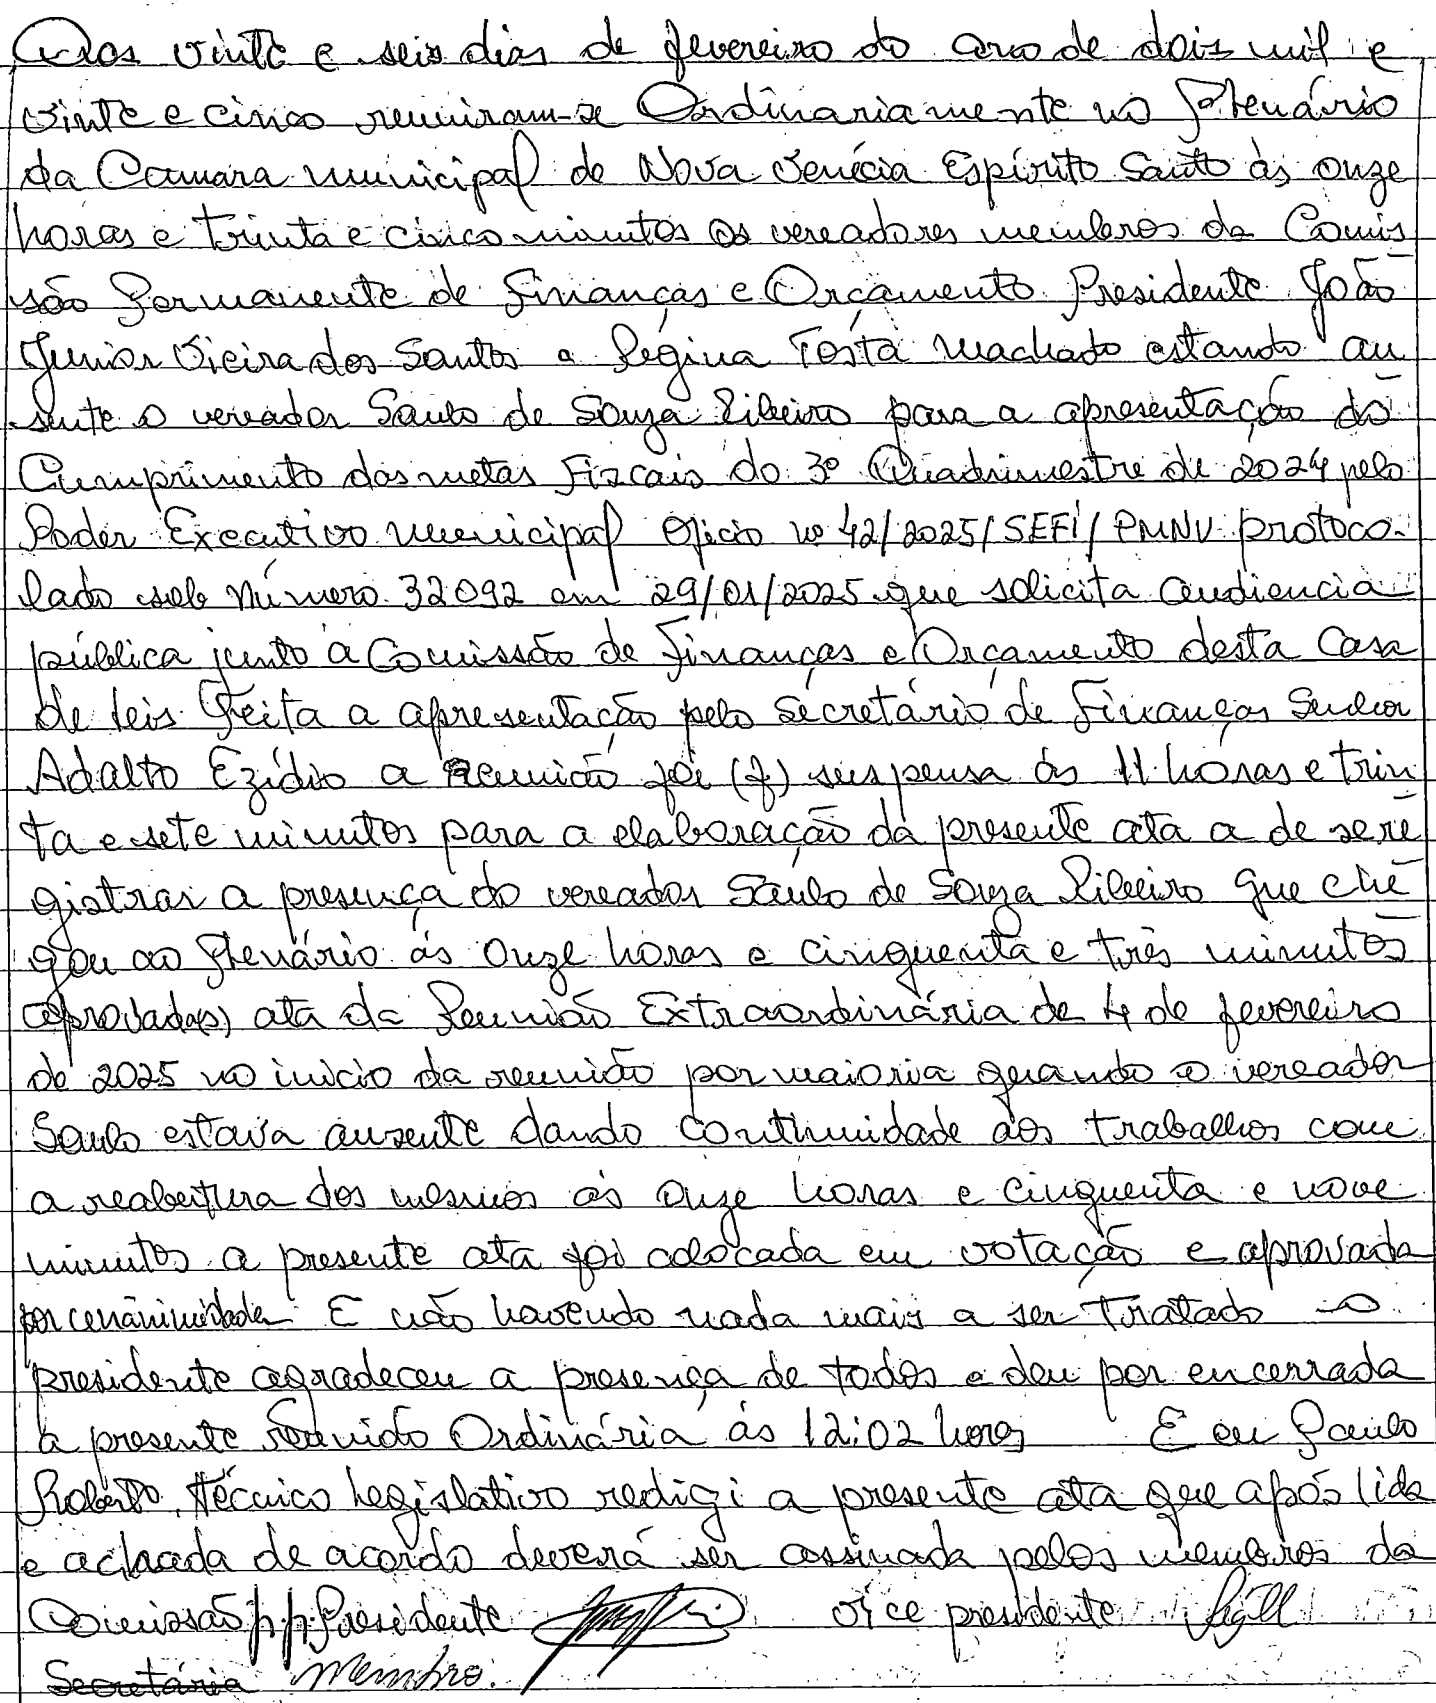 Aos vinte e seis dias de fevereiro do ano de dois mil e
vinte e cinco reuniram-se Ordinariamente no Plenário
da Camara municipal de Nova Venécia Espírito Santo às onze
horas e trinta e cinco minutos os vereadores membros da Comis
são Permanente de Finanças e Orçamento Presidente João
Junior Vieira dos Santos e Regina Tosta Machado estando au
sente o vereador Saulo de Souza Ribeiro para a apresentação do
Cumprimento das metas Fiscais do 3º Quadrimestre de 2024 pelo
Poder Executivo municipal Oficio nº 42/2025/SEFI/PMNV protoco-
lado sob Número 32092 em 29/01/2025 que solicita audiencia
pública junto a Comissão de Finanças e Orçamento desta Casa
de leis Feita a apresentação pelo Secretário de Finanças Senhor
Adalto Ezídio a Reunião foi (f) suspensa às 11 horas e trin
ta e sete minutos para a elaboração da presente ata a de se re
gistrar a presença do vereador Saulo de Souza Ribeiro que che
gou ao Plenário às onze horas e cinquenta e três minutos
aprovada(s) ata da Reunião Extraordinária de 4 de fevereiro
de 2025 no inicio da reunião por maioria quando o vereador
Saulo estava ausente dando continuidade aos trabalhos com
a reabertura dos mesmos as onze horas e cinquenta e nove
minutos a presente ata foi colocada em votação e aprovada
por unânimidade E não havendo nada mais a ser tratado o
presidente agradeceu a presença de todos e deu por encerrada
a presente reunião Ordinária às 12:02 horas E eu Paulo
Roberto, técnico Legislativo redigi a presente ata que após lida
e achada de acordo deverá ser assinada pelos membros da
Comissão p.p. Presidente vice presidente
Secretária Membro: